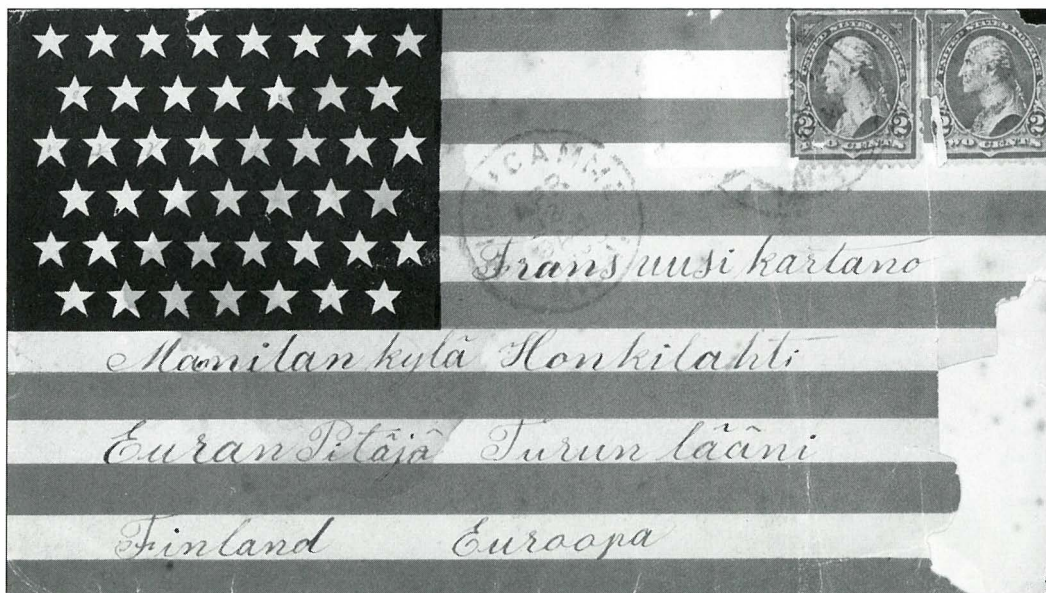 UNITED STATES POSTAGE UNITED STATES POSTAGE
2 2 2 2
TWO CENTS TWO CENTS
Frans uusi kartano
Manilan kylä Honkilahti
Euran Pitäjä Turun lääni
Finland Euroopa